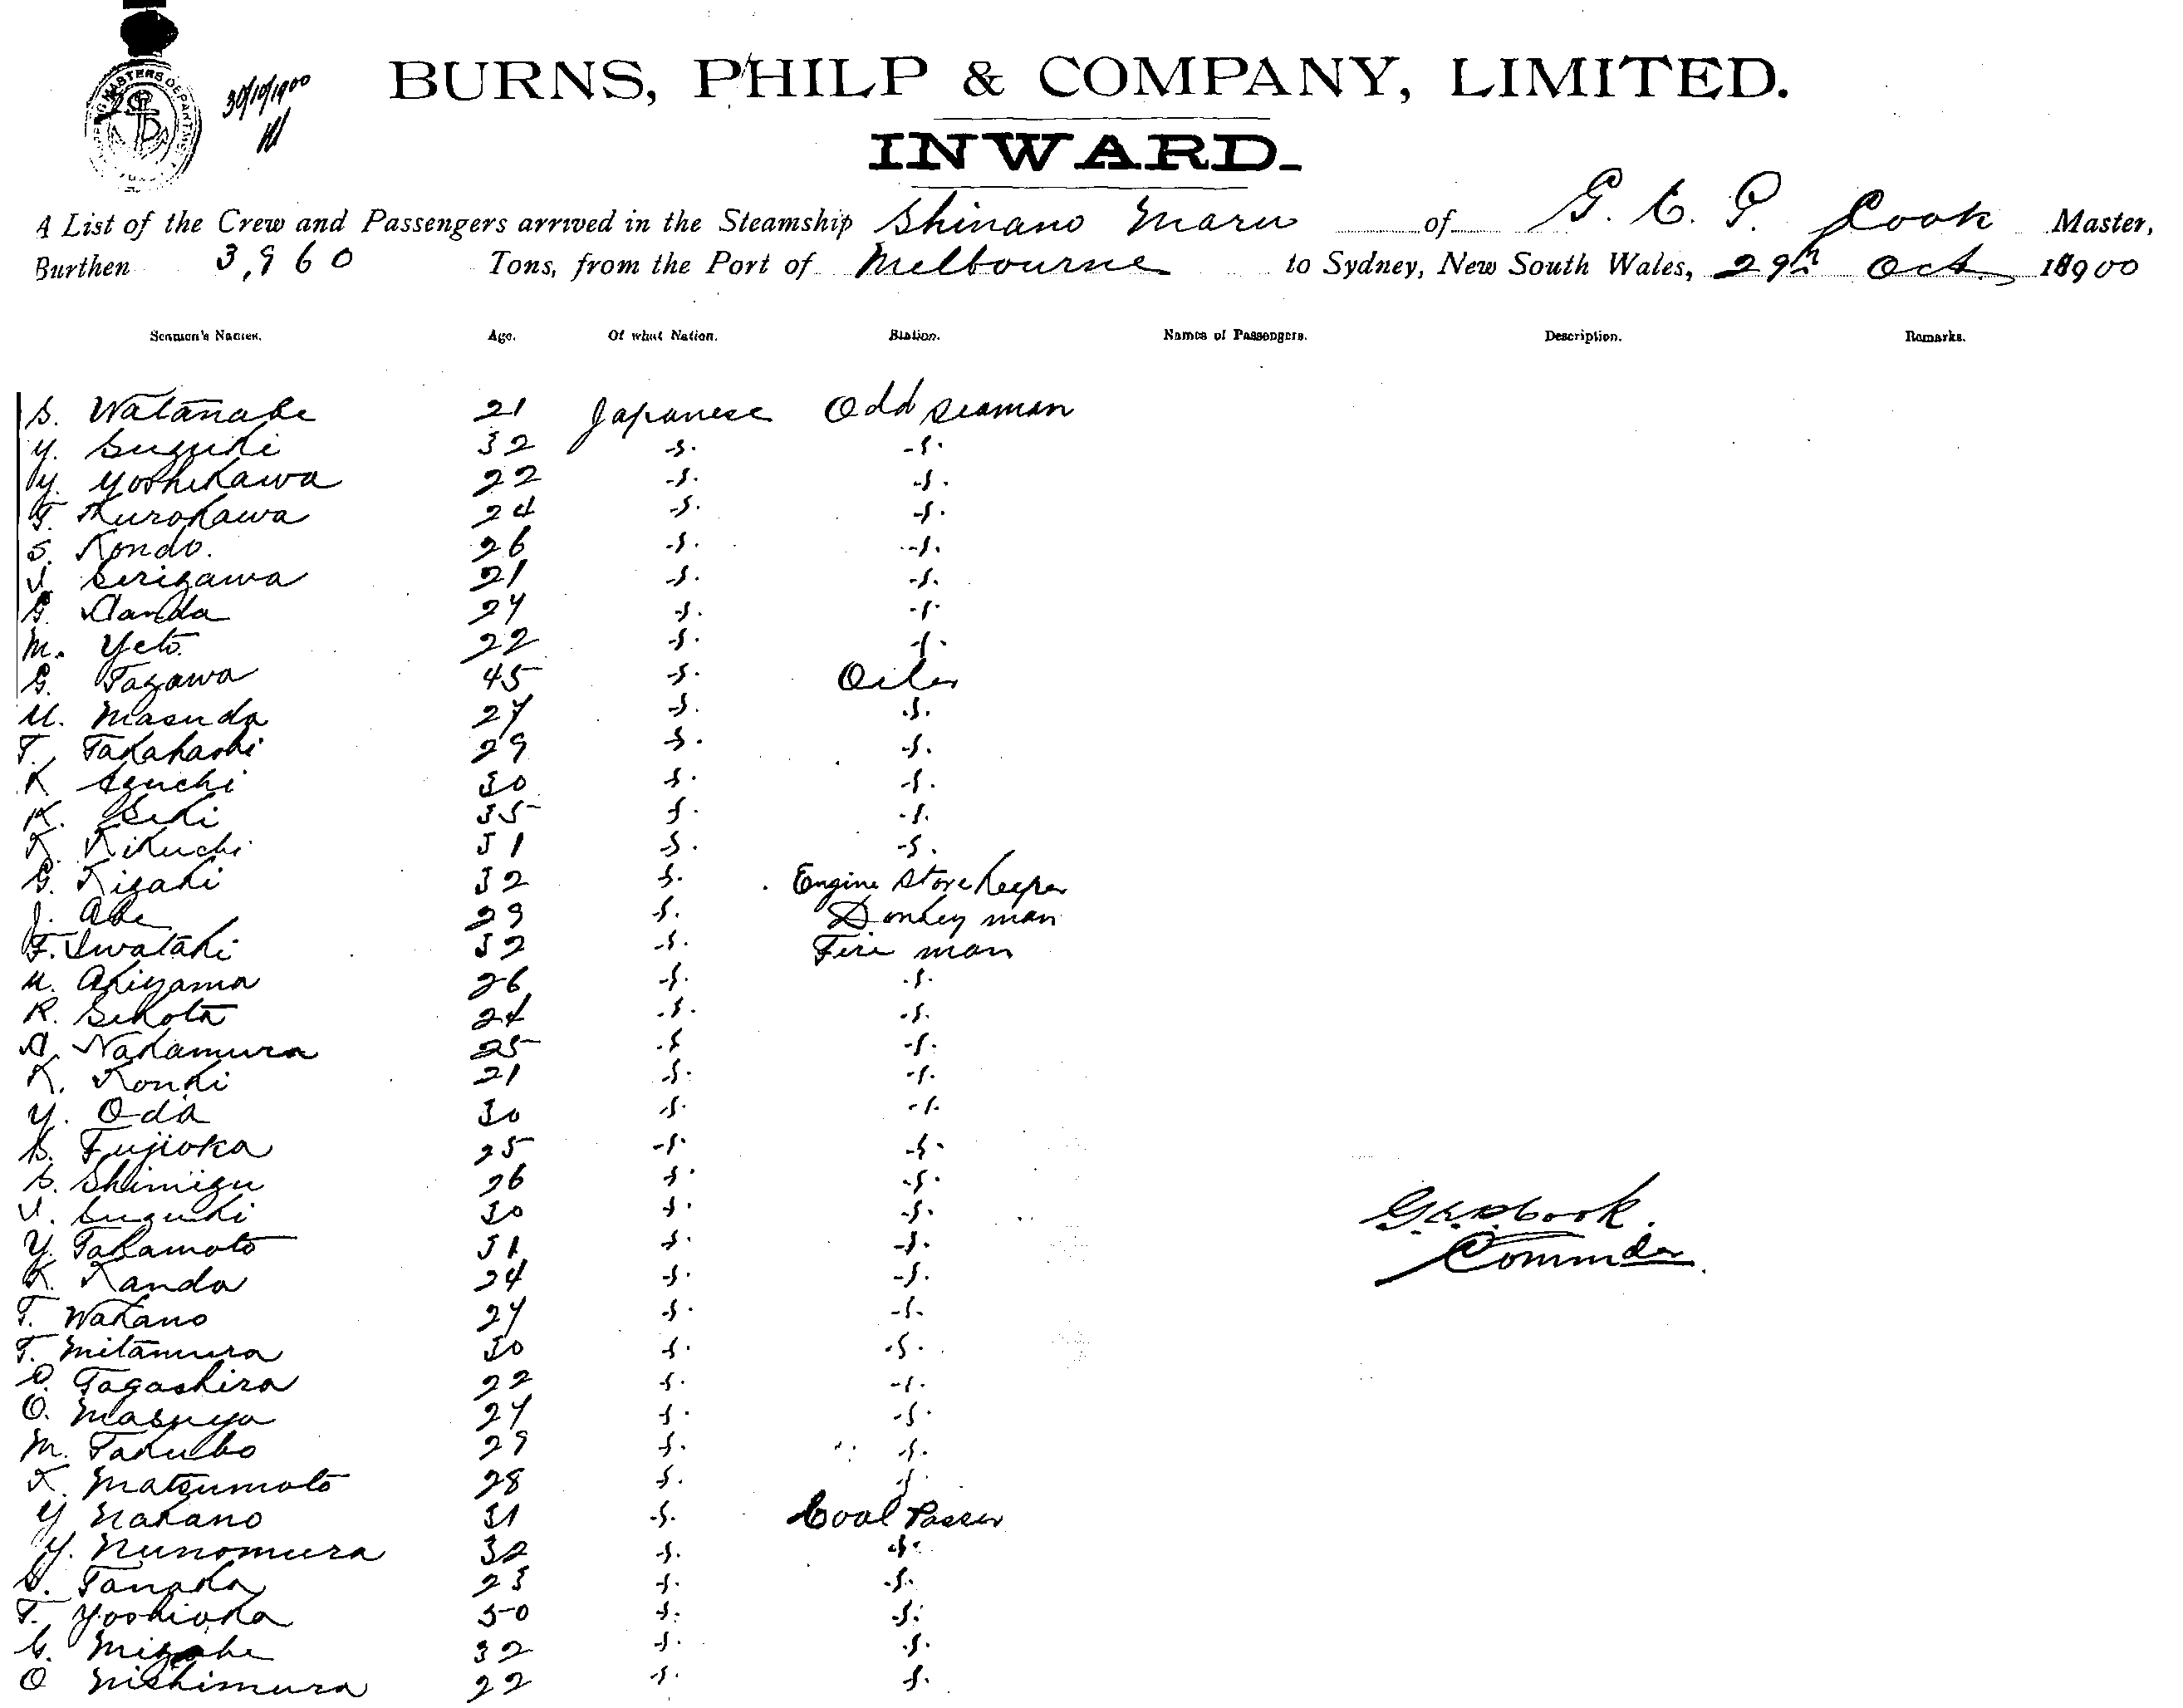 30/10/1900
BURNS, PHILP & COMPANY, LIMITED.
INWARD.
A List of the Crew and Passengers arrived in the Steamship Shinano Maru of G. E. P. Cook Master,
Burthen 3,960 Tons, from the Port of Melbourne to Sydney, New South Wales, 29th Oct. 1900
Seamen's Names. Age. Of what Nation. Station. Names of Passengers. Description. Remarks.
S. Watanabe 21 Japanese Odd seaman
Y. Suzuki 32 -s. -s.
Y. Yoshikawa 22 -s. -s.
T. Kurokawa 24 -s. -s.
S. Kondo. 26 -s. -s.
Serizawa 21 -s. -s.
G. 27 -s. -s.
M. Yeto 22 -s. -s.
G. Tazawa 45 -s. Oiler
U. Masuda 27 -s. -s.
T. Takahashi 29 -s. -s.
K 30 -s. -s.
K. Seki 35 -s. -s.
K. Kikuchi 31 -s. -s.
G. Kizaki 32 -s. Engine Store keeper
J. Abe 29 -s. Donkey man
F. Iwataki 32 -s. Fire man
U. Akiyama 26 -s. -s.
R. Sekota 24 -s. -s.
Nakamura 25 -s -s.
K. Konki 21 -s. -s.
Y. Oda 30 -s. -s.
S. Fujioka 25 -s. -s.
S. Shimizu 26 -s. -s.
Suzuki 30 -s. -s.
Y. Takamoto 31 -s. -s.
K. Kanda 24 -s. -s.
T. Wakano 27 -s. -s.
T. Mitamura 30 -s. -s.
Tagashira 22 -s. -s.
O. Masuya 27 -s. -s.
M. Takubo 29 -s. -s.
K. Matsumoto 28 -s. -s.
Y Nakano 31 -s. Coal Passer
Y. Nunomura 32 -s. -s.
Tanaka 23 -s. -s.
T. Yoshioka 30 -s. -s.
32 -s. -s.
O Nishimura 22 -s. -s.
G.E.P. Cook.
Commder.